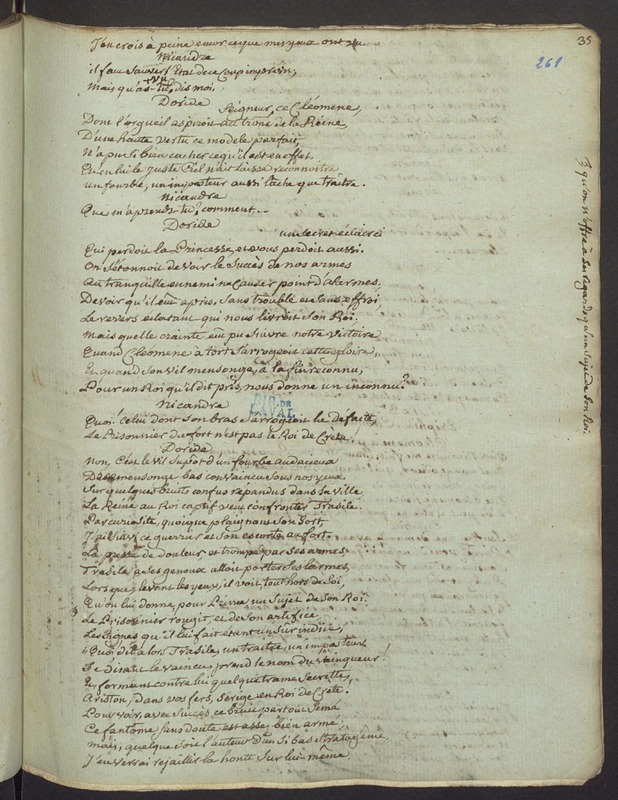 35
261
J'en crois à peine encor ce que mes yeux ont vu
Nicandre
il faut sauver l'Etat de ce coup imprévu,
Mais qu'as-tu vu, dis moi.
Doride
Seigneur, ce Cléomene,
Dont l'orgueil aspiroit au trône de la Reine,
D'une haute vertu ce modele parfait,
N'a pu si bien cacher ce qu'il est en effet.
Qu'en lui le juste Ciel n'ait laissé reconnoitre
un fourbe, un imposteur aussi lâche que traître.
Nicandre
Que m'aprends-tu; comment...
Doride
un secret éclairci
Qui perdoit la Princesse, et vous perdoit aussi.
On s'étonnoit de voir le succès de nos armes
Au tranquille ennemi ne causer point d'alarmes;
De voir qu'il eut apris, sans trouble et sans effroi
Le revers éclatant qui nous livroit son Roi:
Mais quelle crainte eut pu suivre notre victoire
Quand Cléomene à tort s'arrogeoit cette gloire,
Et quand son vil mensonge, à la fin reconnu,
Pour un Roi qu'il dit pris, nous donne un inconnu?
Nicandre
Quoi! celui dont son bras s'arrogeoit la défaite,
Le Prisonnier du fort n'est pas le Roi de Crete.
Doride
Non, C'est le vil supôt d'un fourbe audacieux
De mensonge bas convaincu sous nos yeux.
Sur quelques bruits confus répandus dans la ville
La Reine au Roi captif veut confronter Trasile.
Par curiosité, quoique plaignant son sort,
J'ai suivi ce guerrier et son escorte au fort.
La pussé de douleur et trompé par ses armes,
Trasile à ses genoux alloit porter ses larmes,
Lorsque, levant les yeux, il voit tout hors de soi,
Qu'on lui donne, pour Prince un sujet de son Roi.
Le Prisonnier rougit, et de son artifice
Les signes qu'il lui fait étant un sûr indice,
Quoi dit alors Trasile, un traître, un imposteur
Se disant le vaincu prend le nom du vainqueur!
Et formant contre lui quelque trame secrette,
Ariston, dans vos fers, s'érige en Roi de Crete.
Pour voir, avec succès ce bruit partout semé
Ce fantôme sans doute est assez bien armé:
mais, quelque soit l'auteur d'un si bas stratagême,
J'en verrai rejaillir la honte sur lui-même
BIB. DE
LAVAL
qu'on n'offre à ses regards qu'un sujet de son Roi.